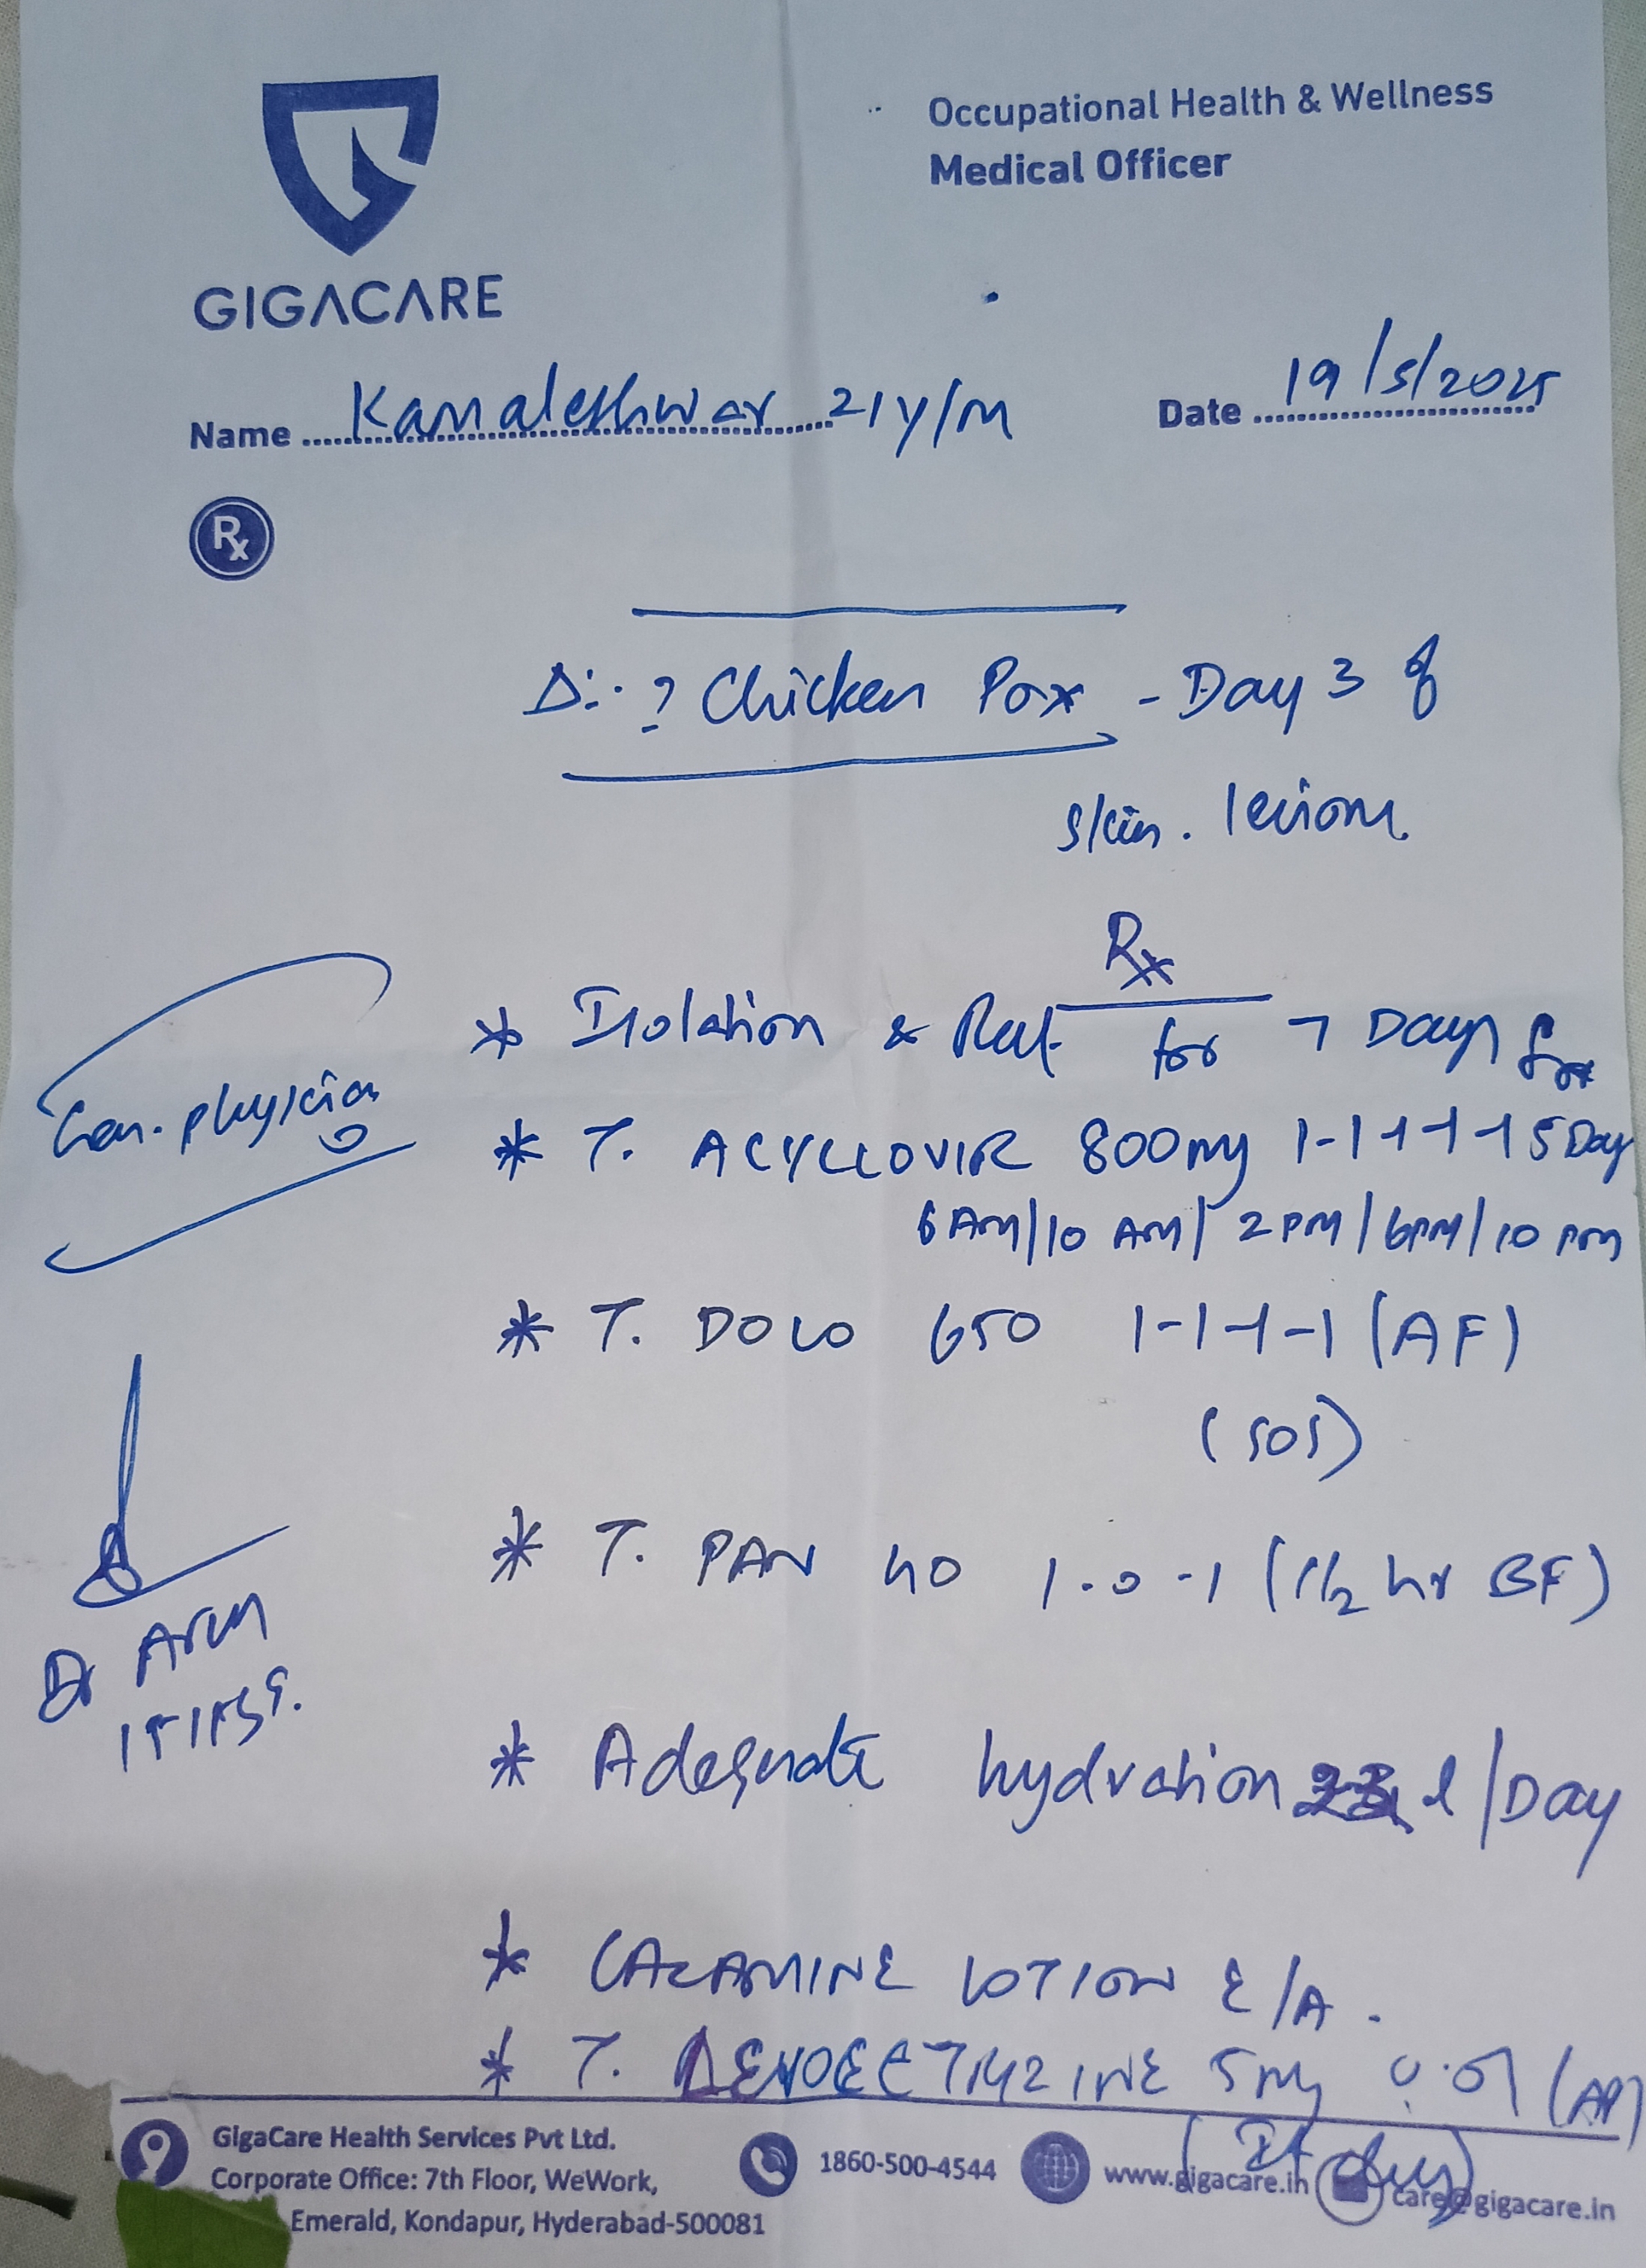 Occupational Health & Wellness
Medical Officer
GIGACARE
Name Kamaleshwar 21y/M
Date 19/5/2025
Rx
Δ:- ? Chicken Pox - Day 3 of
skin. lesions
Rx
* Isolation & Rest for 7 Days
Gen. physician
* T. ACYCLOVIR 800mg 1-1-1-1-1 5 Day
6 AM/10 AM/ 2 PM/6PM/10 PM
* T. DOLO 650 1-1-1-1 (AF)
(SOS)
* T. PAN 40 1-0-1 (1/2 hr BF)
Dr Arun
* Adequate hydration l/Day
* CALAMINE LOTION E/A.
* T. LEVOCETRIZINE 5mg 0-0-1
GigaCare Health Services Pvt Ltd.
Corporate Office: 7th Floor, WeWork,
Emerald, Kondapur, Hyderabad-500081
1860-500-4544
www.gigacare.in
care@gigacare.in